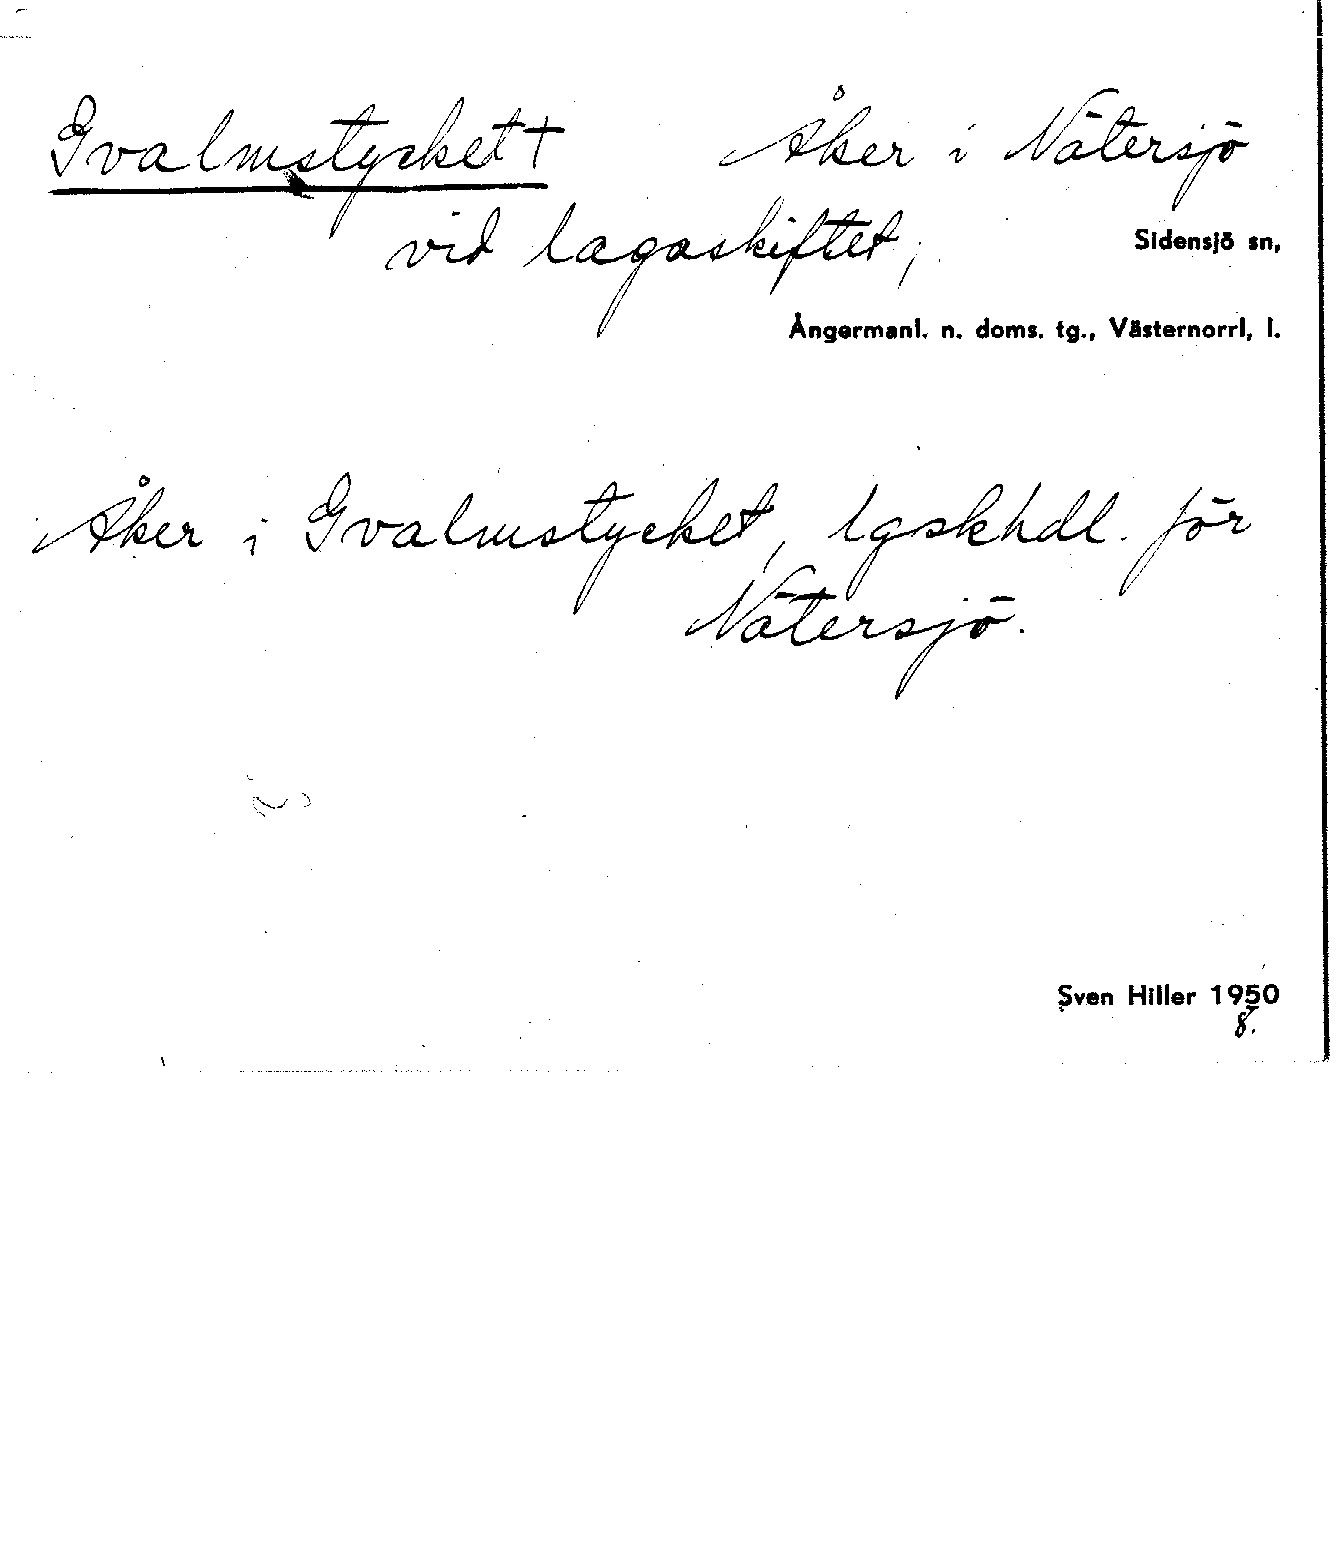 Gvalmstycket† Åker i Nätersjö
vid lagaskiftet, Sidensjö sn,
Ångermanl. n. doms. tg., Västernorrl, l.
Åker i Gvalmstycket, lgskhdl. för
Nätersjö.
Sven Hiller 1950
8.